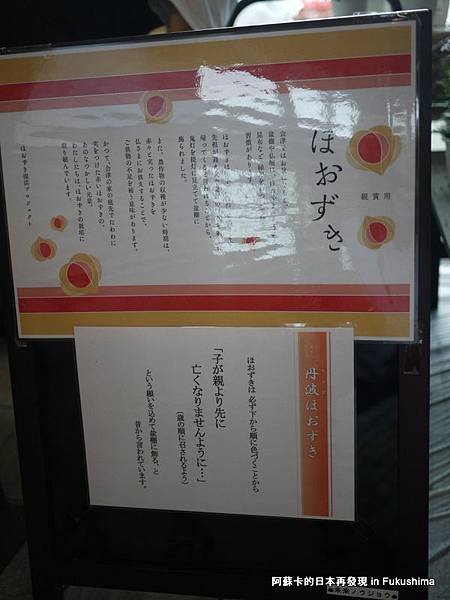 ほおずき
観賞用
会津ではお
盆棚や仏壇に
昆布など
習慣があり
ほおずきは
先祖が
帰って
鬼灯を提灯に見立てて盆棚に
飾られました。
また、農作物の収穫が少ない時期は、
赤々と実ったほおずきを
仏さまにお供えすることで、
ご供物の不足を補う意味があります。
かつて、会津の家の庭先でたわわに
実をつけた赤いほおずきの、
あのなつかしい光景。
わたしたちは、ほおずきの栽培に
取り組んでいます。
ほおずき復活プロジェクト
丹波ほおずき
ほおずきは 必ず下から順に色づくことから
「子が親より先に
亡くなりませんように…」
(歳の順に召されるよう)
という願いを込めて盆棚に飾る、と
昔から言われています。
阿蘇卡的日本再發現 in Fukushima
未来ノウジョウ